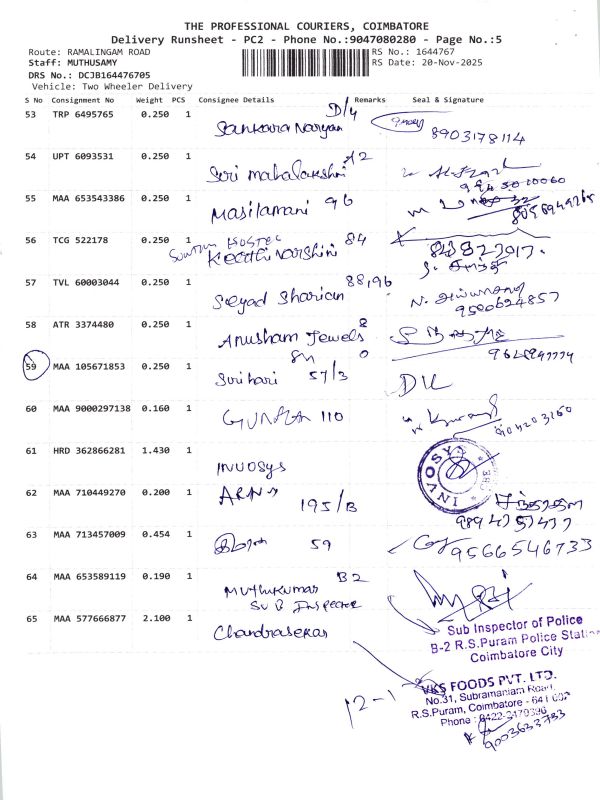 THE PROFESSIONAL COURIERS, COIMBATORE
Delivery Runsheet - PC2 - Phone No.:9047080280 - Page No.:5
Route: RAMALINGAM ROAD RS No.: 1644767
Staff: MUTHUSAMY RS Date: 20-Nov-2025
DRS No.: DCJB164476705
Vehicle: Two Wheeler Delivery
S No Consignment No Weight PCS Consignee Details Remarks Seal & Signature
53 TRP 6495765 0.250 1 Sankara Narayan D/4 8903178114
54 UPT 6093531 0.250 1 Sri mahalakshmi A2
55 MAA 653543386 0.250 1 Masilamani 96
56 TCG 522178 0.250 1 HOSTEL Keerthi varshini 84
57 TVL 60003044 0.250 1 Seyad Sharian 88,96 9500624857
58 ATR 3374480 0.250 1 Anusham Jewels
59 MAA 105671853 0.250 1 Srihari 57/3
60 MAA 9000297138 0.160 1 110
61 HRD 362866281 1.430 1 INVOSYS INVOSYS
62 MAA 710449270 0.200 1 195/B
63 MAA 713457009 0.454 1 59 9566546733
64 MAA 653589119 0.190 1 Muthukumar B2
Sub Inspector
Sub Inspector of Police
B-2 R.S.Puram Police Station
Coimbatore City
65 MAA 577666877 2.100 1 Chandrasekar
12-1
VKS FOODS PVT. LTD.
No.31, Subramaniam Road,
R.S.Puram, Coimbatore - 641 002
Phone : 0422-2479396
9003633733